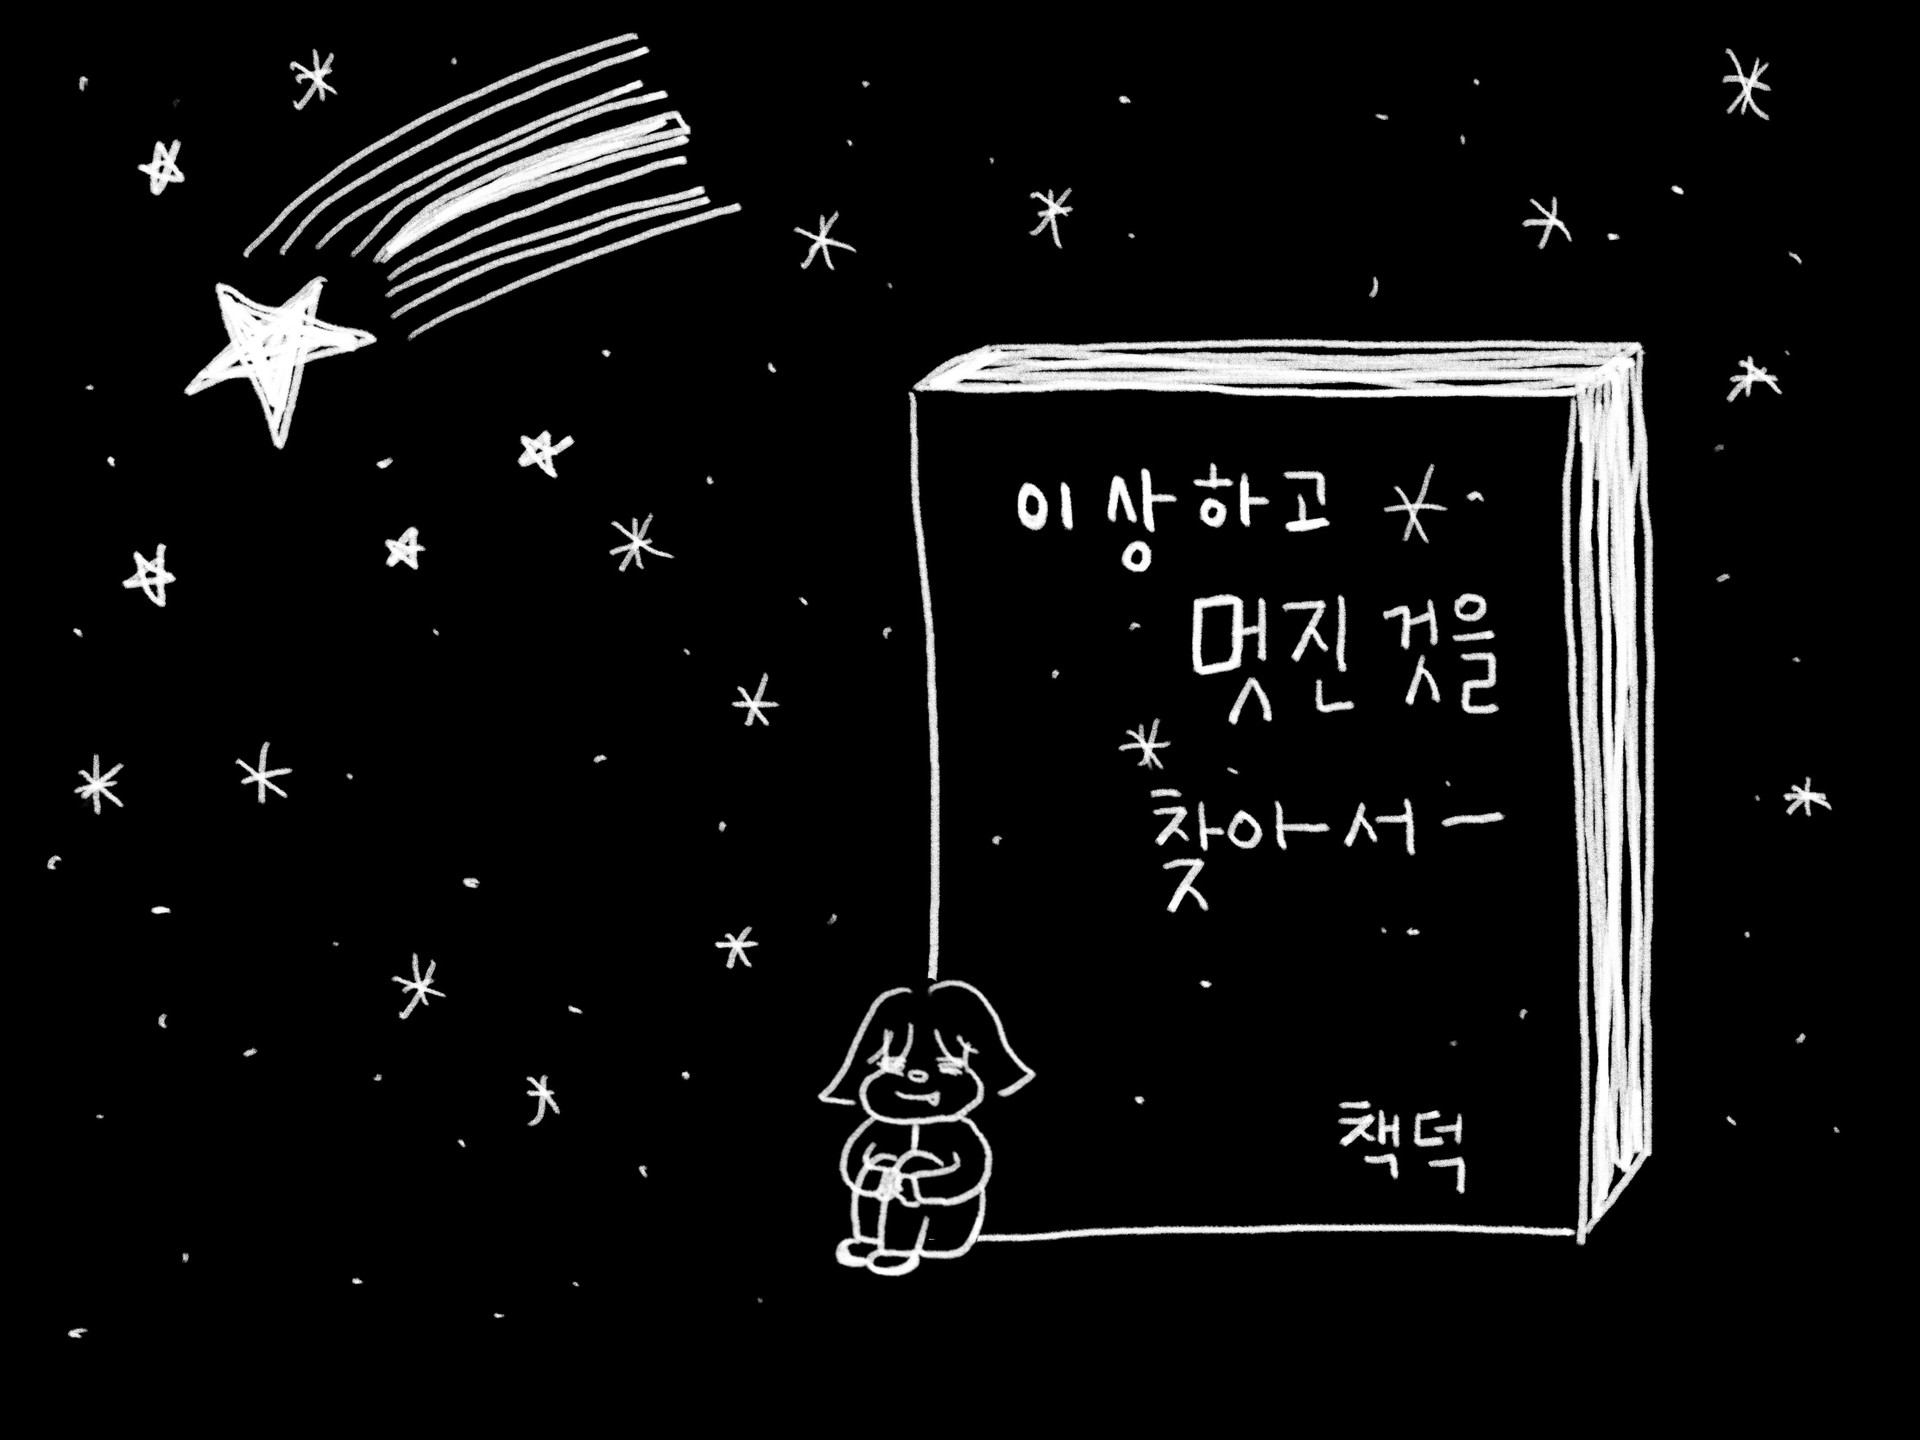 이상하고
멋진 것을
찾아서 —
책덕